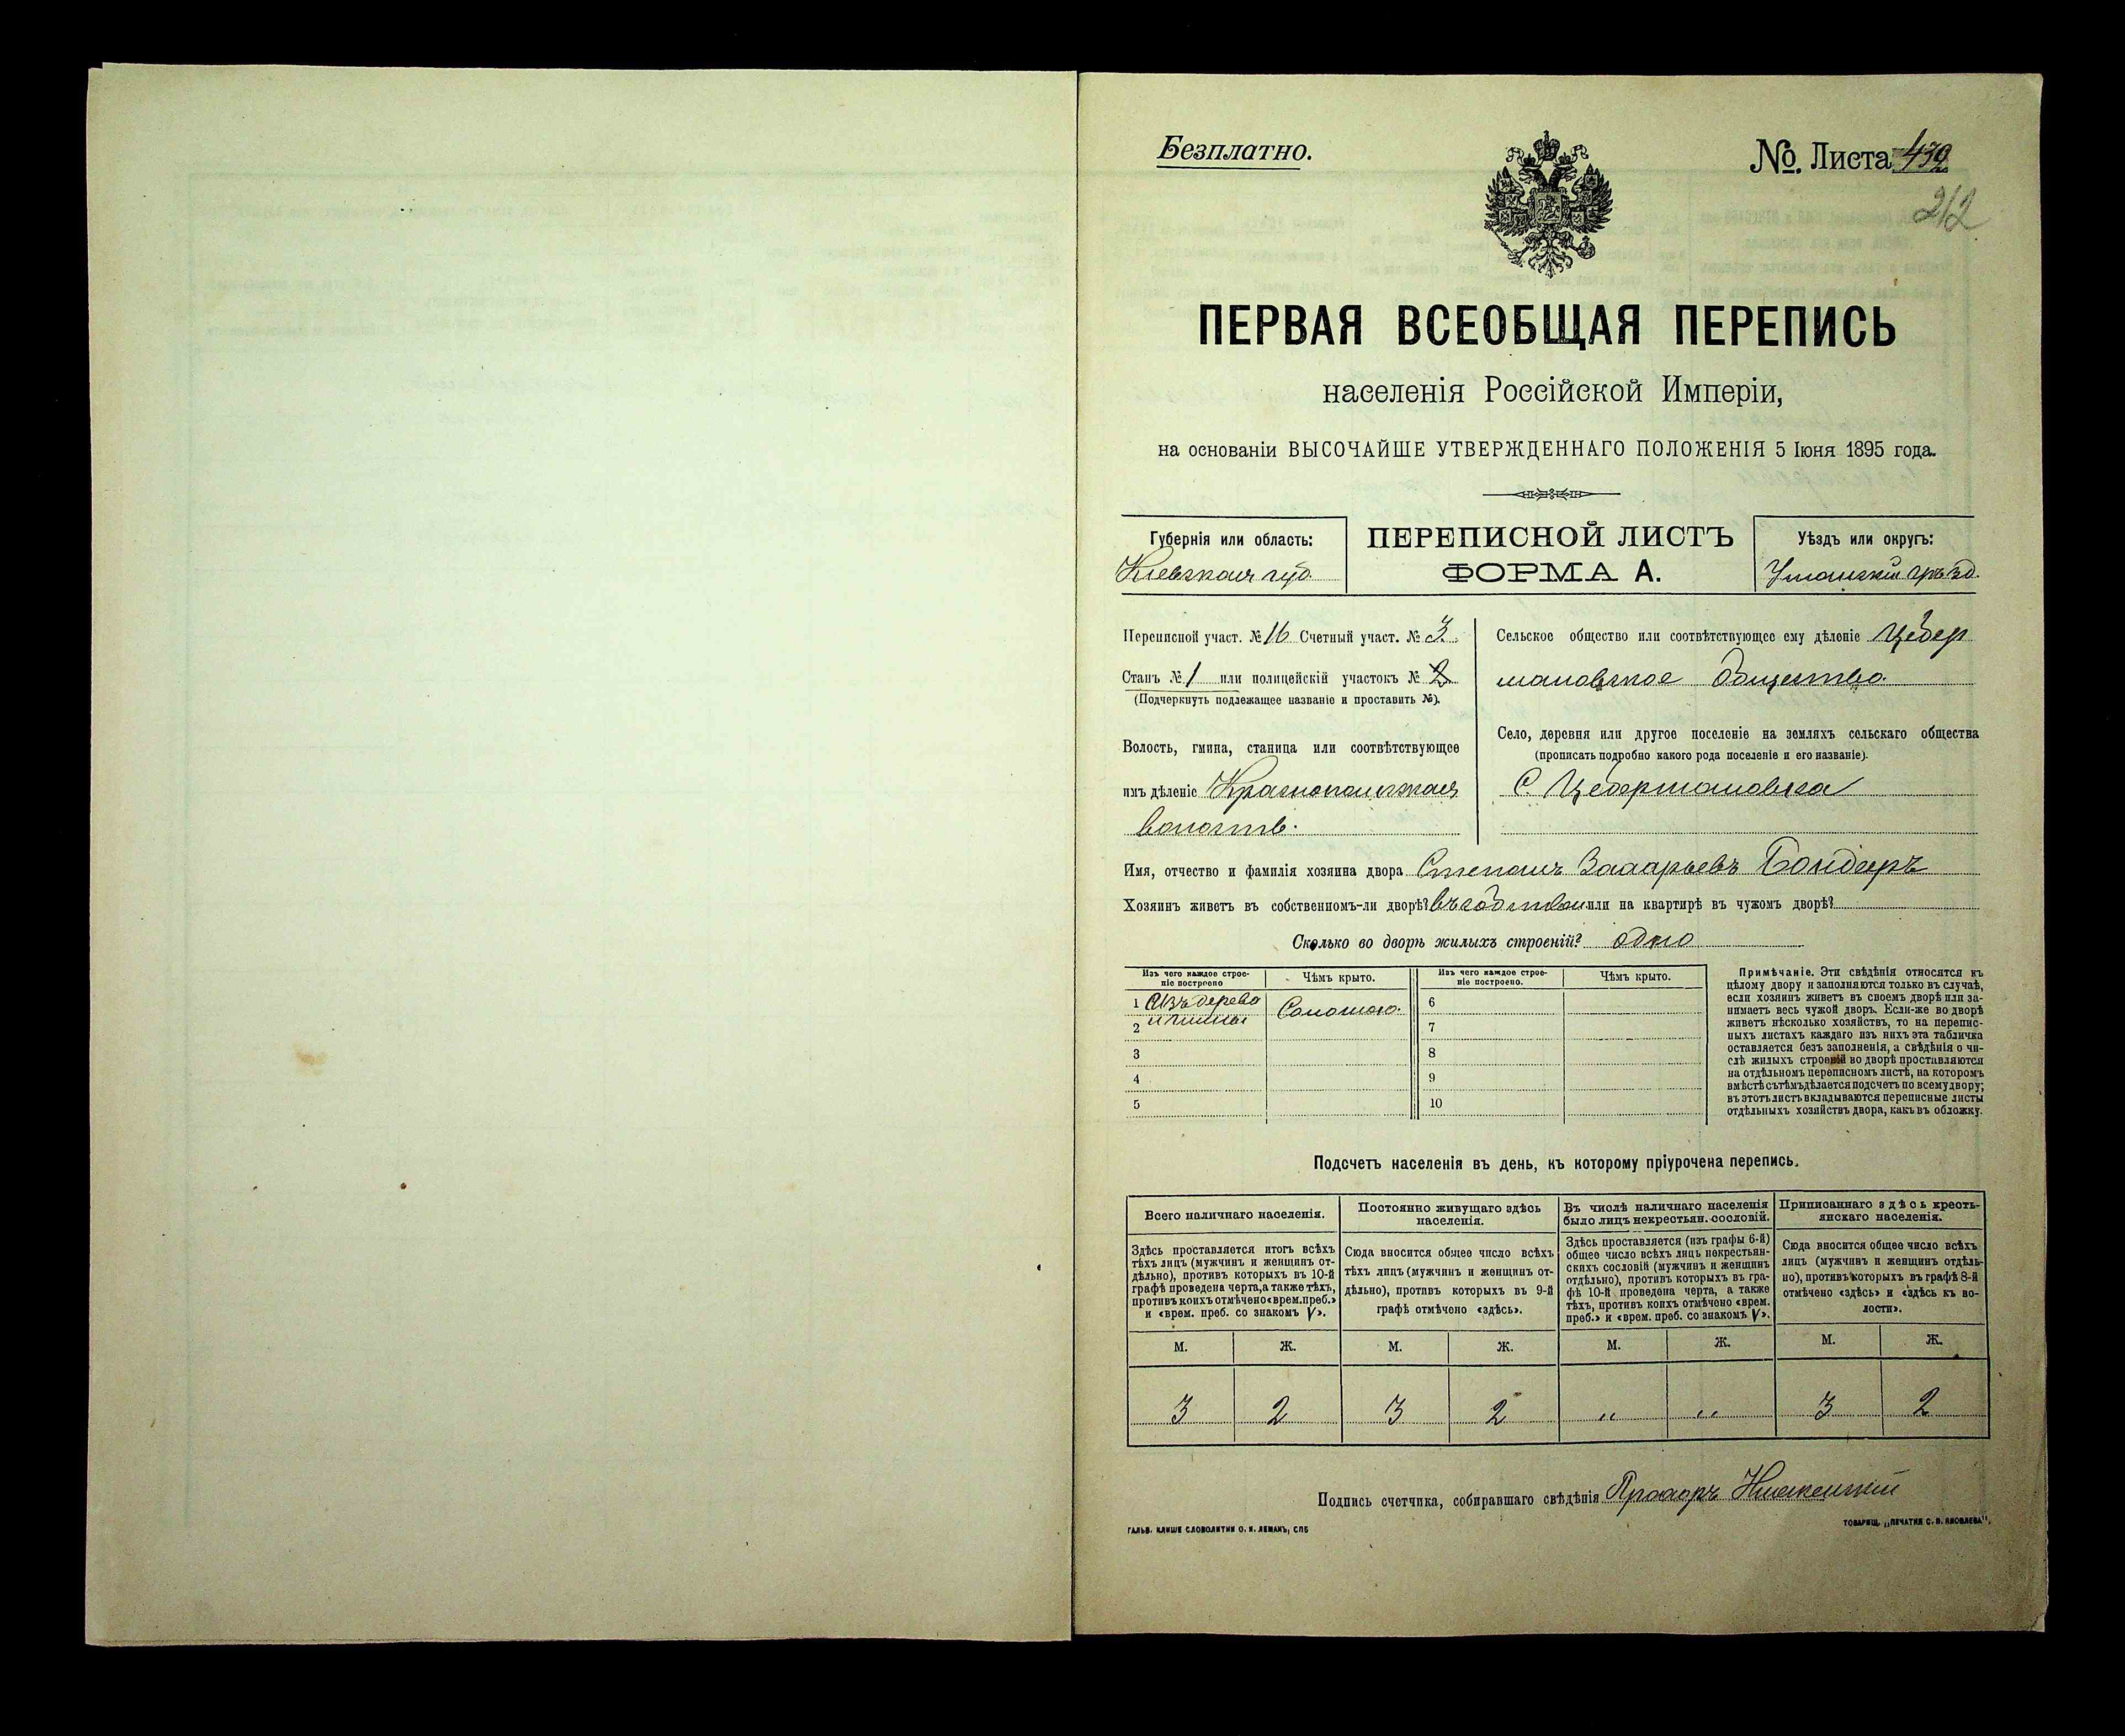 Безплатно.
№. Листа 432
212
ПЕРВАЯ ВСЕОБЩАЯ ПЕРЕПИСЬ
населенія Россійской Имперіи,
на основаніи ВЫСОЧАЙШЕ УТВЕРЖДЕННАГО ПОЛОЖЕНІЯ 5 Іюня 1895 года.
Губернія или область:
Кіевская губ.
ПЕРЕПИСНОЙ ЛИСТЪ
ФОРМА А.
Уѣздъ или округъ:
Уманскій уѣзд.
Переписной участ. № 16 Счетный участ. № 3.
Станъ № 1 или полицейскій участокъ № 2
(Подчеркнуть подлежащее названіе и проставить №).
Волость, гмина, станица или соотвѣтствующее
имъ дѣленіе Краснопольская
волость.
Сельское общество или соотвѣтствующее ему дѣленіе Цебер
мановское общество.
Село, деревня или другое поселеніе на земляхъ сельскаго общества
(прописать подробно какого рода поселеніе и его названіе).
С. Цебермановка
Имя, отчество и фамилія хозяина двора Степанъ Захарьевъ Бондарь
Хозяинъ живетъ въ собственномъ-ли дворѣ? въ собствен. или на квартирѣ въ чужомъ дворѣ?
Сколько во дворѣ жилыхъ строеній? одно
Изъ чего каждое строе-
ніе построено
Чѣмъ крыто.
Изъ чего каждое строе-
ніе построено.
Чѣмъ крыто.
1 Изъ дерева
2 и глины
Соломою.
3
4
5
6
7
8
9
10
Примѣчаніе. Эти свѣдѣнія относятся къ
цѣлому двору и заполняются только въ случаѣ,
если хозяинъ живетъ въ своемъ дворѣ или за-
нимаетъ весь чужой дворъ. Если-же во дворѣ
живетъ нѣсколько хозяйствъ, то на перепис-
ныхъ листахъ каждаго изъ нихъ эта табличка
оставляется безъ заполненія, а свѣдѣнія о чи-
слѣ жилыхъ строеній во дворѣ проставляются
на отдѣльномъ переписномъ листѣ, на которомъ
вмѣстѣ съ тѣмъ дѣлается подсчетъ по всему двору;
въ этотъ листъ вкладываются переписные листы
отдѣльныхъ хозяйствъ двора, какъ въ обложку.
Подсчетъ населенія въ день, къ которому пріурочена перепись.
Всего наличнаго населенія.
Здѣсь проставляется итогъ всѣхъ
тѣхъ лицъ (мужчинъ и женщинъ от-
дѣльно), противъ которыхъ въ 10-й
графѣ проведена черта, а также тѣхъ,
противъ коихъ отмѣчено «врем. преб.»
и «врем. преб. со знакомъ V».
Постоянно живущаго здѣсь
населенія.
Сюда вносится общее число всѣхъ
тѣхъ лицъ (мужчинъ и женщинъ от-
дѣльно), противъ которыхъ въ 9-й
графѣ отмѣчено «здѣсь».
Въ числѣ наличнаго населенія
было лицъ некрестьян. сословій.
Здѣсь проставляется (изъ графы 6-й)
общее число всѣхъ лицъ некрестьян-
скихъ сословій (мужчинъ и женщинъ
отдѣльно), противъ которыхъ въ гра-
фѣ 10-й проведена черта, а также
тѣхъ, противъ коихъ отмѣчено «врем.
преб.» и «врем. преб. со знакомъ V».
Приписаннаго здѣсь кресть-
янскаго населенія.
Сюда вносится общее число всѣхъ
лицъ (мужчинъ и женщинъ отдѣль-
но), противъ которыхъ въ графѣ 8-й
отмѣчено «здѣсь» и «здѣсь къ во-
лости».
М. Ж. М. Ж. М. Ж. М. Ж.
3 2 3 2 „ „ 3 2
Подпись счетчика, собиравшаго свѣдѣнія Прохоръ
ГАЛЬВ. КЛИШЕ СЛОВОЛИТНИ О. И. ЛЕМАНЪ, СПБ
ТОВАРИЩ. „ПЕЧАТНЯ С. П. ЯКОВЛЕВА".